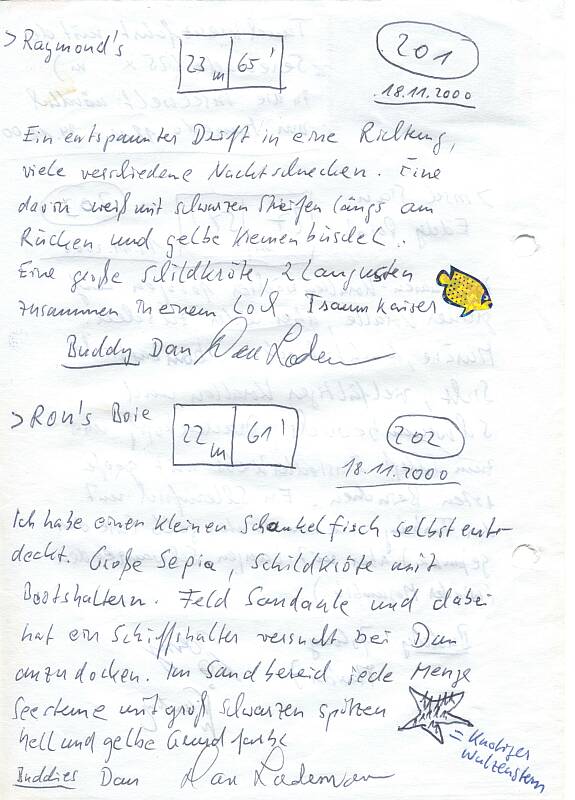 > Raymond's 23 m 65' 201
18.11.2000
Ein entspannter Drift in eine Richtung,
viele verschiedene Nachtschnecken. Eine
davon weiß mit schwarzen Streifen längs am
Rücken und gelbe Kiemenbüschel.
Eine große Schildkröte, 2 Langusten
zusammen in einem Loch Traumkaiser
Buddy Dan Dan Lodem
> Ron's Boie 22 m 61' 202
18.11.2000
Ich habe einen kleinen Schaukelfisch selbst ent-
deckt. Große Sepia, Schildkröte mit
Bootshaltern. Feld Sandaale und dabei
hat ein Schiffshalter versucht bei Dan
anzudocken. Im Sandbereich jede Menge
Seesterne mit groß schwarzen spitzen
hell und gelbe Grundfarbe
= Knotiger
Walzenstern
Buddies Dan Dan Lodeman